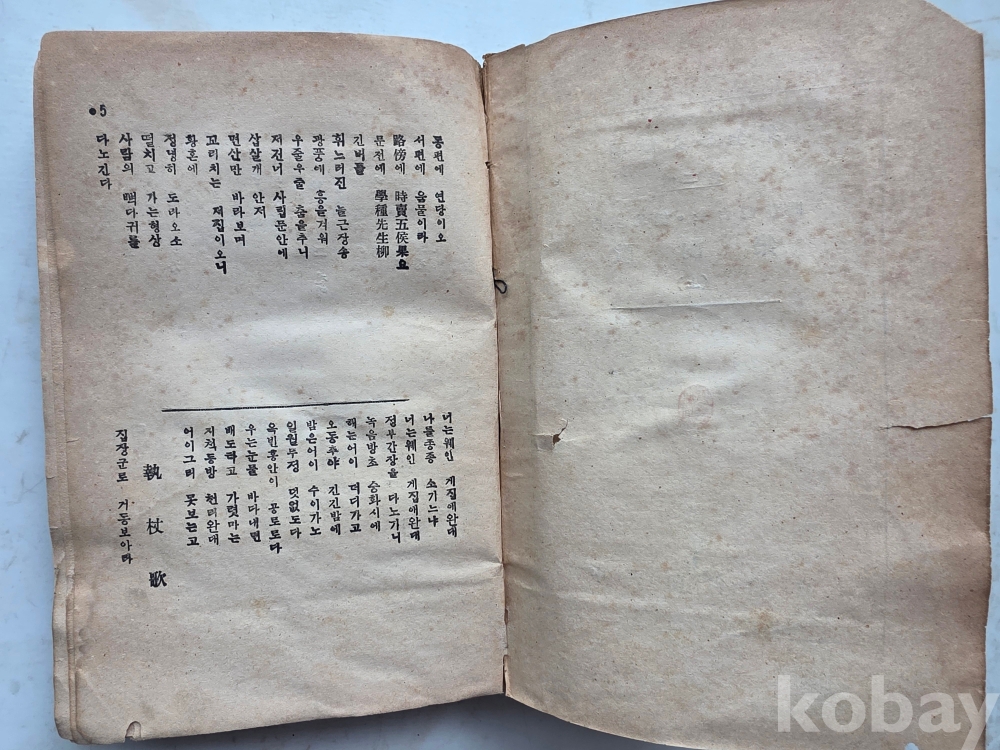 동편에 연당이오
서편에 울물이라
路傍에 時賣五侯果요
문전에 學種先生柳
긴버들
휘느러진 늘근장송
광풍에 흥을겨워
우줄우줄 춤을추니
저건너 사립문안에
삽살개 안저
먼산만 바라보며
꼬리치는 저집이오니
황혼에
정녕히 도라오소
떨치고 가는형상
사람의 뼉다귀를
다노긴다
●5
너는웨인 게집애완대
나를종종 소기느냐
너는웨인 게집애완대
정부간장을 다노기니
녹음방초 승화시에
해는어이 더디가고
오동추야 긴긴밤에
밤은어이 수이가노
일월무정 덧없도다
옥빈홍안이 공로로다
우는눈물 바다내면
배도타고 가렷마는
지척동방 천리완대
어이그리 못보는고
執杖歌
집장군로 거동보아라
kobay